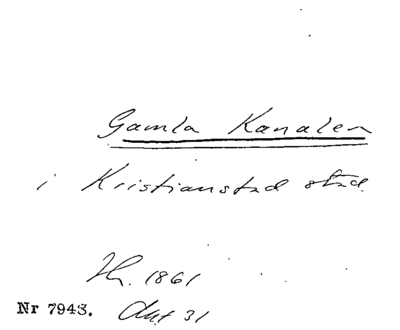 Gamla Kanalen
i Kristianstad stad.
Hr. 1861
Nr 7943. Okt 31